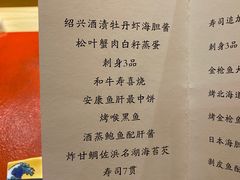 绍兴酒渍牡丹虾海胆酱
松叶蟹肉白籽蒸蛋
刺身3品
和牛寿喜烧
安康鱼肝最中饼
烤喉黑鱼
酒蒸鲍鱼配肝酱
炸甘鲷佐浜名湖海苔芡
寿司7贯
寿司追加
刺身3品
金枪鱼大
烤北海道
烤金枪鱼
日本海
剥皮鱼配